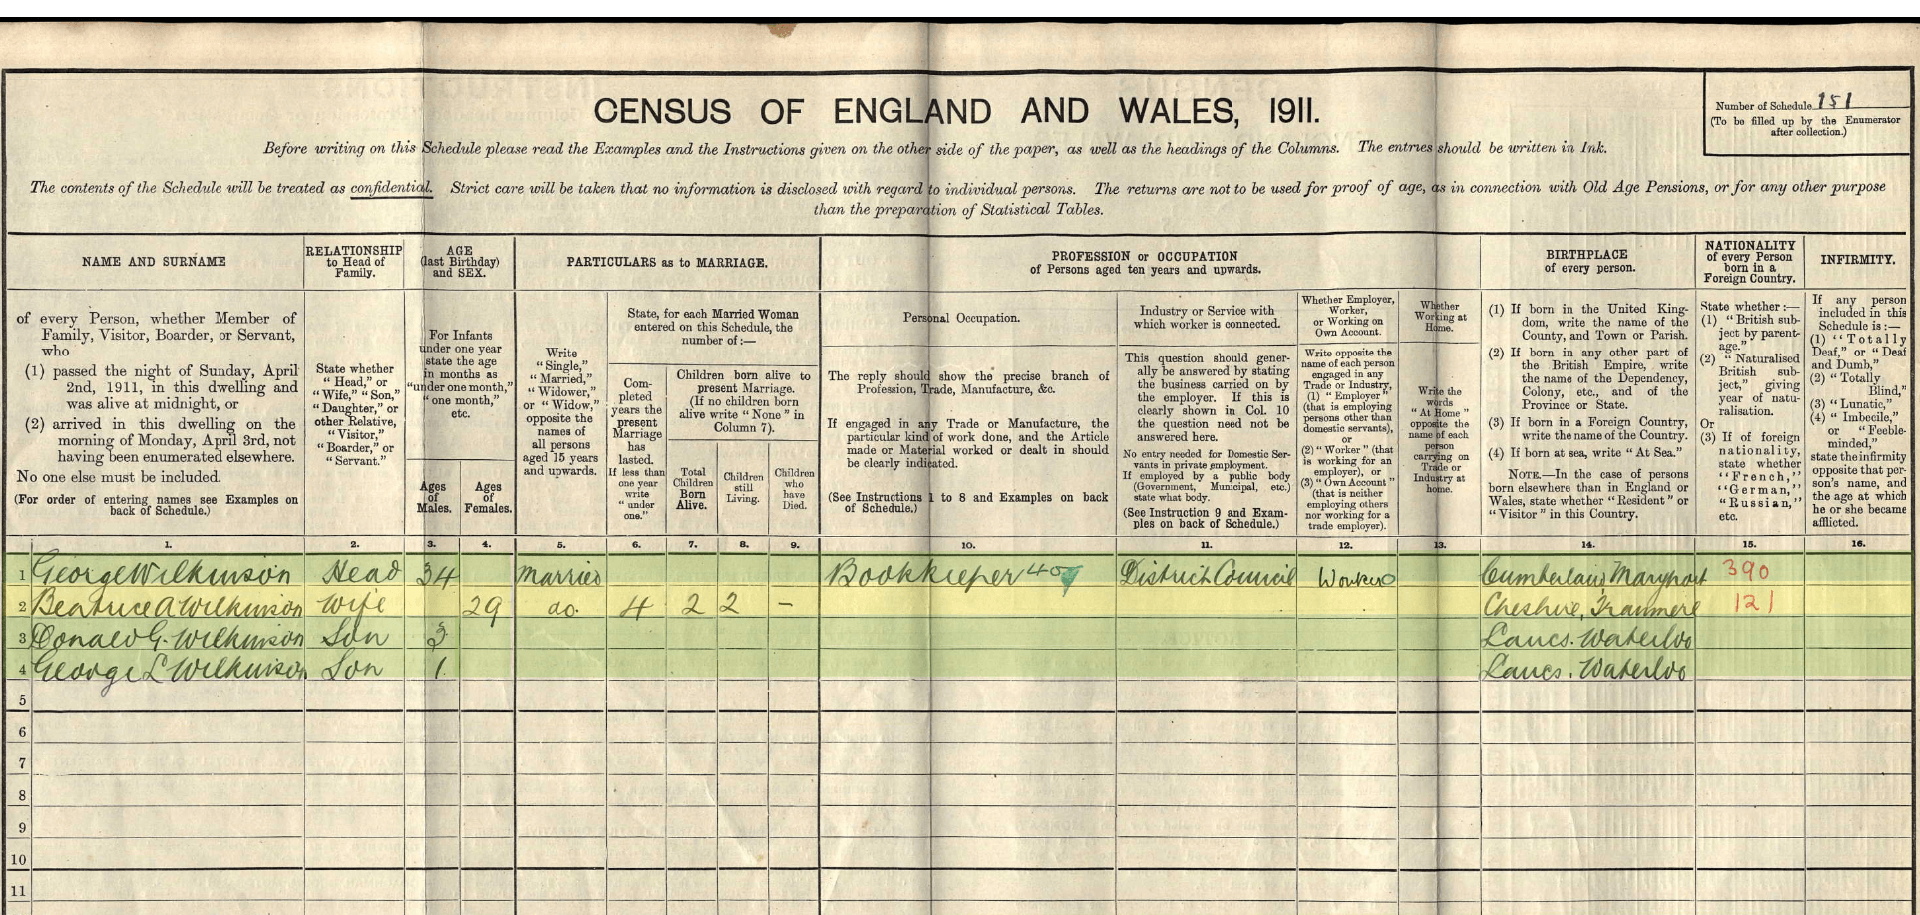 CENSUS OF ENGLAND AND WALES, 1911.
Number of Schedule 151
(To be filled up by the Enumerator
after collection.)
Before writing on this Schedule please read the Examples and the Instructions given on the other side of the paper, as well as the headings of the Columns. The entries should be written in Ink.
The contents of the Schedule will be treated as confidential. Strict care will be taken that no information is disclosed with regard to individual persons. The returns are not to be used for proof of age, as in connection with Old Age Pensions, or for any other purpose
than the preparation of Statistical Tables.
NAME AND SURNAME
of every Person, whether Member of
Family, Visitor, Boarder, or Servant,
who
(1) passed the night of Sunday, April
2nd, 1911, in this dwelling and
was alive at midnight, or
(2) arrived in this dwelling on the
morning of Monday, April 3rd, not
having been enumerated elsewhere.
No one else must be included.
(For order of entering names see Examples on
back of Schedule.)
RELATIONSHIP
to Head of
Family.
State whether
"Head," or
"Wife," "Son,"
"Daughter," or
other Relative,
"Visitor,"
"Boarder," or
"Servant."
AGE
(last Birthday)
and SEX.
For Infants
under one year
state the age
in months as
"under one month,"
"one month,"
etc.
Ages
of
Males.
Ages
of
Females.
PARTICULARS as to MARRIAGE.
Write
"Single,"
"Married,"
"Widower,"
or "Widow,"
opposite the
names of
all persons
aged 15 years
and upwards.
State, for each Married Woman
entered on this Schedule, the
number of:—
Com-
pleted
years the
present
Marriage
has
lasted.
If less than
one year
write
"under
one."
Children born alive to
present Marriage.
(If no children born
alive write "None" in
Column 7).
Total
Children
Born
Alive.
Children
still
Living.
Children
who
have
Died.
PROFESSION or OCCUPATION
of Persons aged ten years and upwards.
Personal Occupation.
The reply should show the precise branch of
Profession, Trade, Manufacture, &c.
If engaged in any Trade or Manufacture, the
particular kind of work done, and the Article
made or Material worked or dealt in should
be clearly indicated.
(See Instructions 1 to 8 and Examples on back
of Schedule.)
Industry or Service with
which worker is connected.
This question should gener-
ally be answered by stating
the business carried on by
the employer. If this is
clearly shown in Col. 10
the question need not be
answered here.
No entry needed for Domestic Ser-
vants in private employment.
If employed by a public body
(Government, Municipal, etc.)
state what body.
(See Instruction 9 and Exam-
ples on back of Schedule.)
Whether Employer,
Worker,
or Working on
Own Account.
Write opposite the
name of each person
engaged in any
Trade or Industry,
(1) "Employer"
(that is employing
persons other than
domestic servants),
or
(2) "Worker" (that
is working for an
employer), or
(3) "Own Account"
(that is neither
employing others
nor working for a
trade employer).
Whether
Working at
Home.
Write the
words
"At Home"
opposite the
name of each
person
carrying on
Trade or
Industry at
home.
BIRTHPLACE
of every person.
(1) If born in the United King-
dom, write the name of the
County, and Town or Parish.
(2) If born in any other part of
the British Empire, write
the name of the Dependency,
Colony, etc., and of the
Province or State.
(3) If born in a Foreign Country,
write the name of the Country.
(4) If born at sea, write "At Sea."
NOTE.—In the case of persons
born elsewhere than in England or
Wales, state whether "Resident" or
"Visitor" in this Country.
NATIONALITY
of every Person
born in a
Foreign Country.
State whether:—
(1) "British sub-
ject by parent-
age."
(2) "Naturalised
British sub-
ject," giving
year of natu-
ralisation.
Or
(3) If of foreign
nationality,
state whether
"French,"
"German,"
"Russian,"
etc.
INFIRMITY.
If any person
included in this
Schedule is:—
(1) "Totally
Deaf," or "Deaf
and Dumb,"
(2) "Totally
Blind,"
(3) "Lunatic,"
(4) "Imbecile,"
or "Feeble-
minded,"
state the infirmity
opposite that per-
son's name, and
the age at which
he or she became
afflicted.
1. 2. 3. 4. 5. 6. 7. 8. 9. 10. 11. 12. 13. 14. 15. 16.
1 George Wilkinson Head 34 Married Bookkeeper District Council Worker Cumberland Maryport 390
2 Beatrice A Wilkinson Wife 29 do. 4 2 2 – Cheshire, Tranmere 121
3 Donald G. Wilkinson Son 3 Lancs. Waterloo
4 George L Wilkinson Son 1. Lancs. Waterloo
5
6
7
8
9
10
11